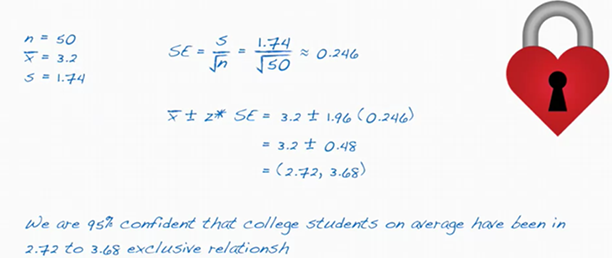 n = 50
x̄ = 3.2
s = 1.74
SE = s/√n = 1.74/√50 ≈ 0.246
x̄ ± z* SE = 3.2 ± 1.96 (0.246)
= 3.2 ± 0.48
= (2.72, 3.68)
We are 95% confident that college students on average have been in
2.72 to 3.68 exclusive relationsh